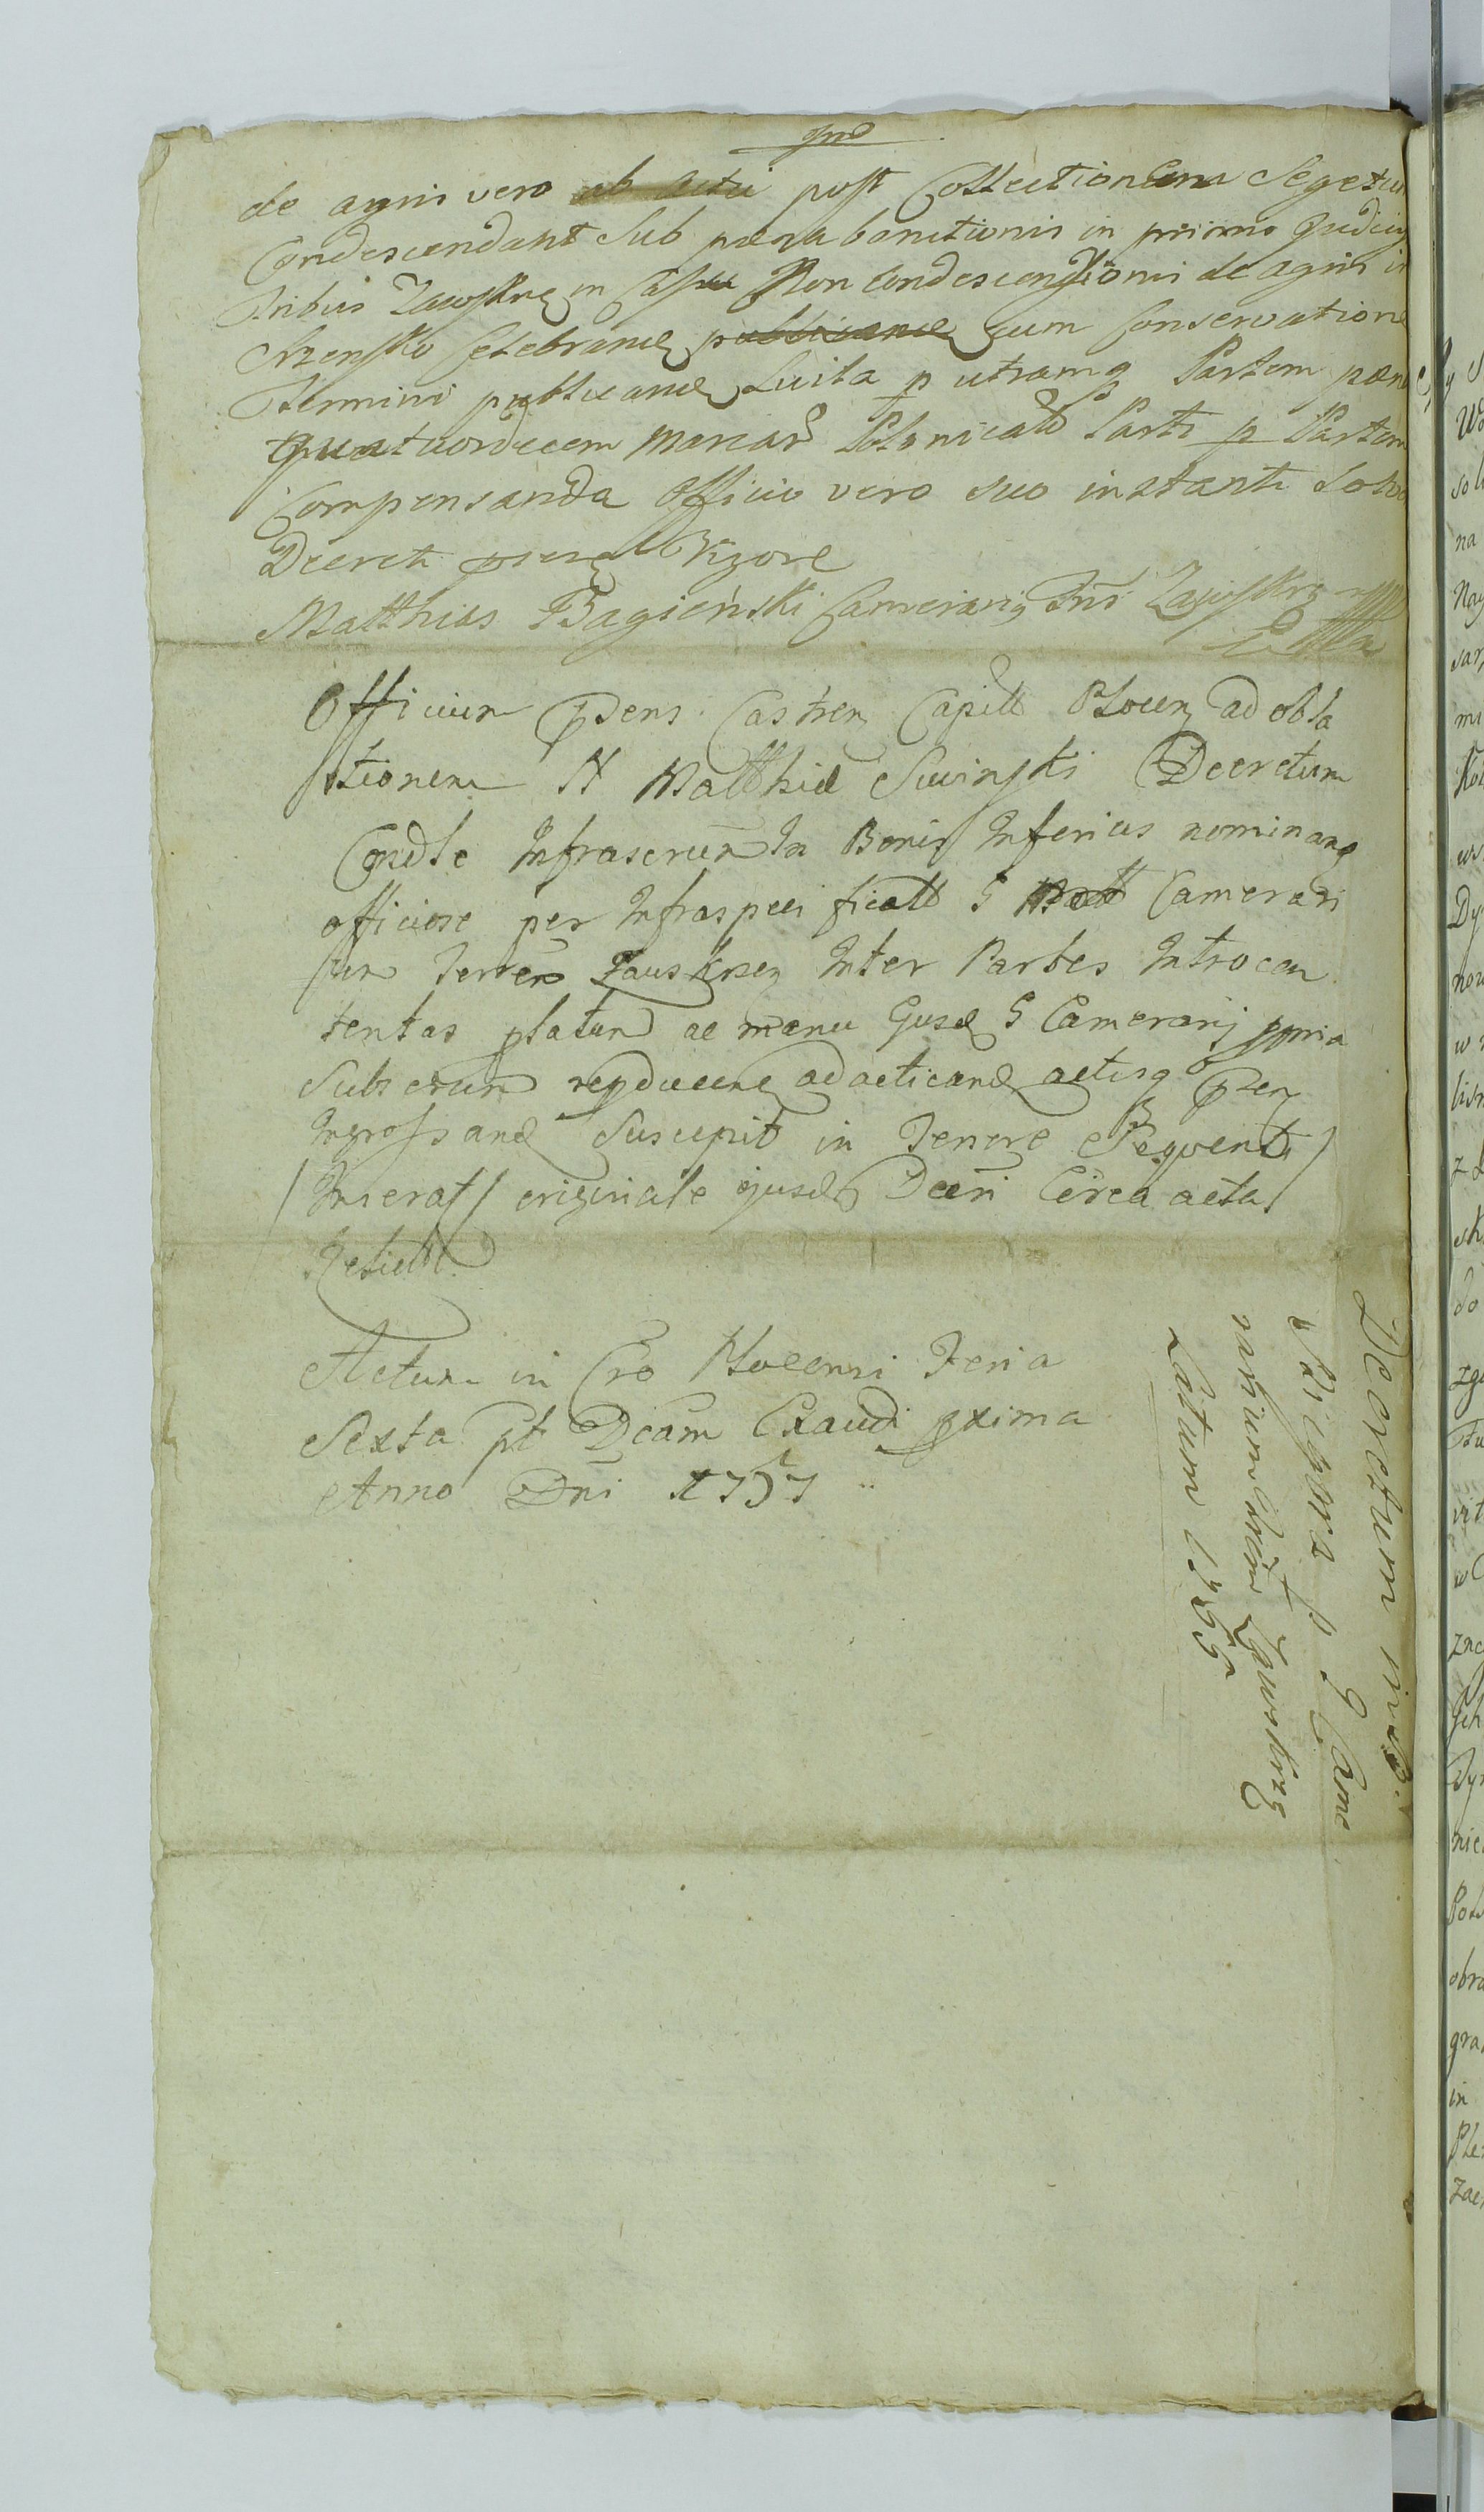 de agris vero ab actu post Collectionem Segetum
Condescendant Sub pœna banitionis in primis Judicijs
Tribus Zawskrn in Casu Non Condescensionis de agris in
Szrensko Celebrand publicand cum Conservatione
Termini publicand Luita p utramq Partem pœna
quatuordecem marcar Polonicalt Parti p Partem
Compensanda Officio vero suo instanti Solvo
Decreti prns Vigore
Matthias Bagieński Camerarig Tris Zawskrz
Officium Pdens Castren Capitt Plocen ad obla
tionem N Matthiæ Suwinski Decretum
Condle Infrascrum In Bonis Inferius nominang
officiose per Infraspeci ficatt G Camerari
um Terren Zauskrzen Inter Partes Introcon
tentas platum ac manu Ejusd G Camerarij ppria
Subscrum repducens ad acticand actisq Psen
Ingrossand Suscepit in Tenore Sequenti
/ Inserat / originale ejusd Decri Circa acta /
Relictt
Actum in Cro Plocensi Feria
Sexta pt Dcam Exaudi pxima
Anno Dni 1757
Decretum
G Came
rarium Zawskrz
Latum 1755